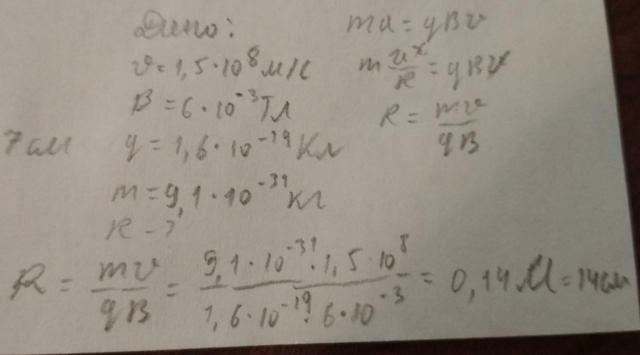 Дано:
υ = 1,5·10⁸ м/с
B = 6·10⁻³ Тл
q = 1,6·10⁻¹⁹ Кл
m = 9,1·10⁻³¹ кг
R - ?
7 см
ma = qBυ
m υ²/R = qBυ
R = mυ/qB
R = mυ/qB = 9,1·10⁻³¹·1,5·10⁸ / 1,6·10⁻¹⁹·6·10⁻³ = 0,14 м = 14 см